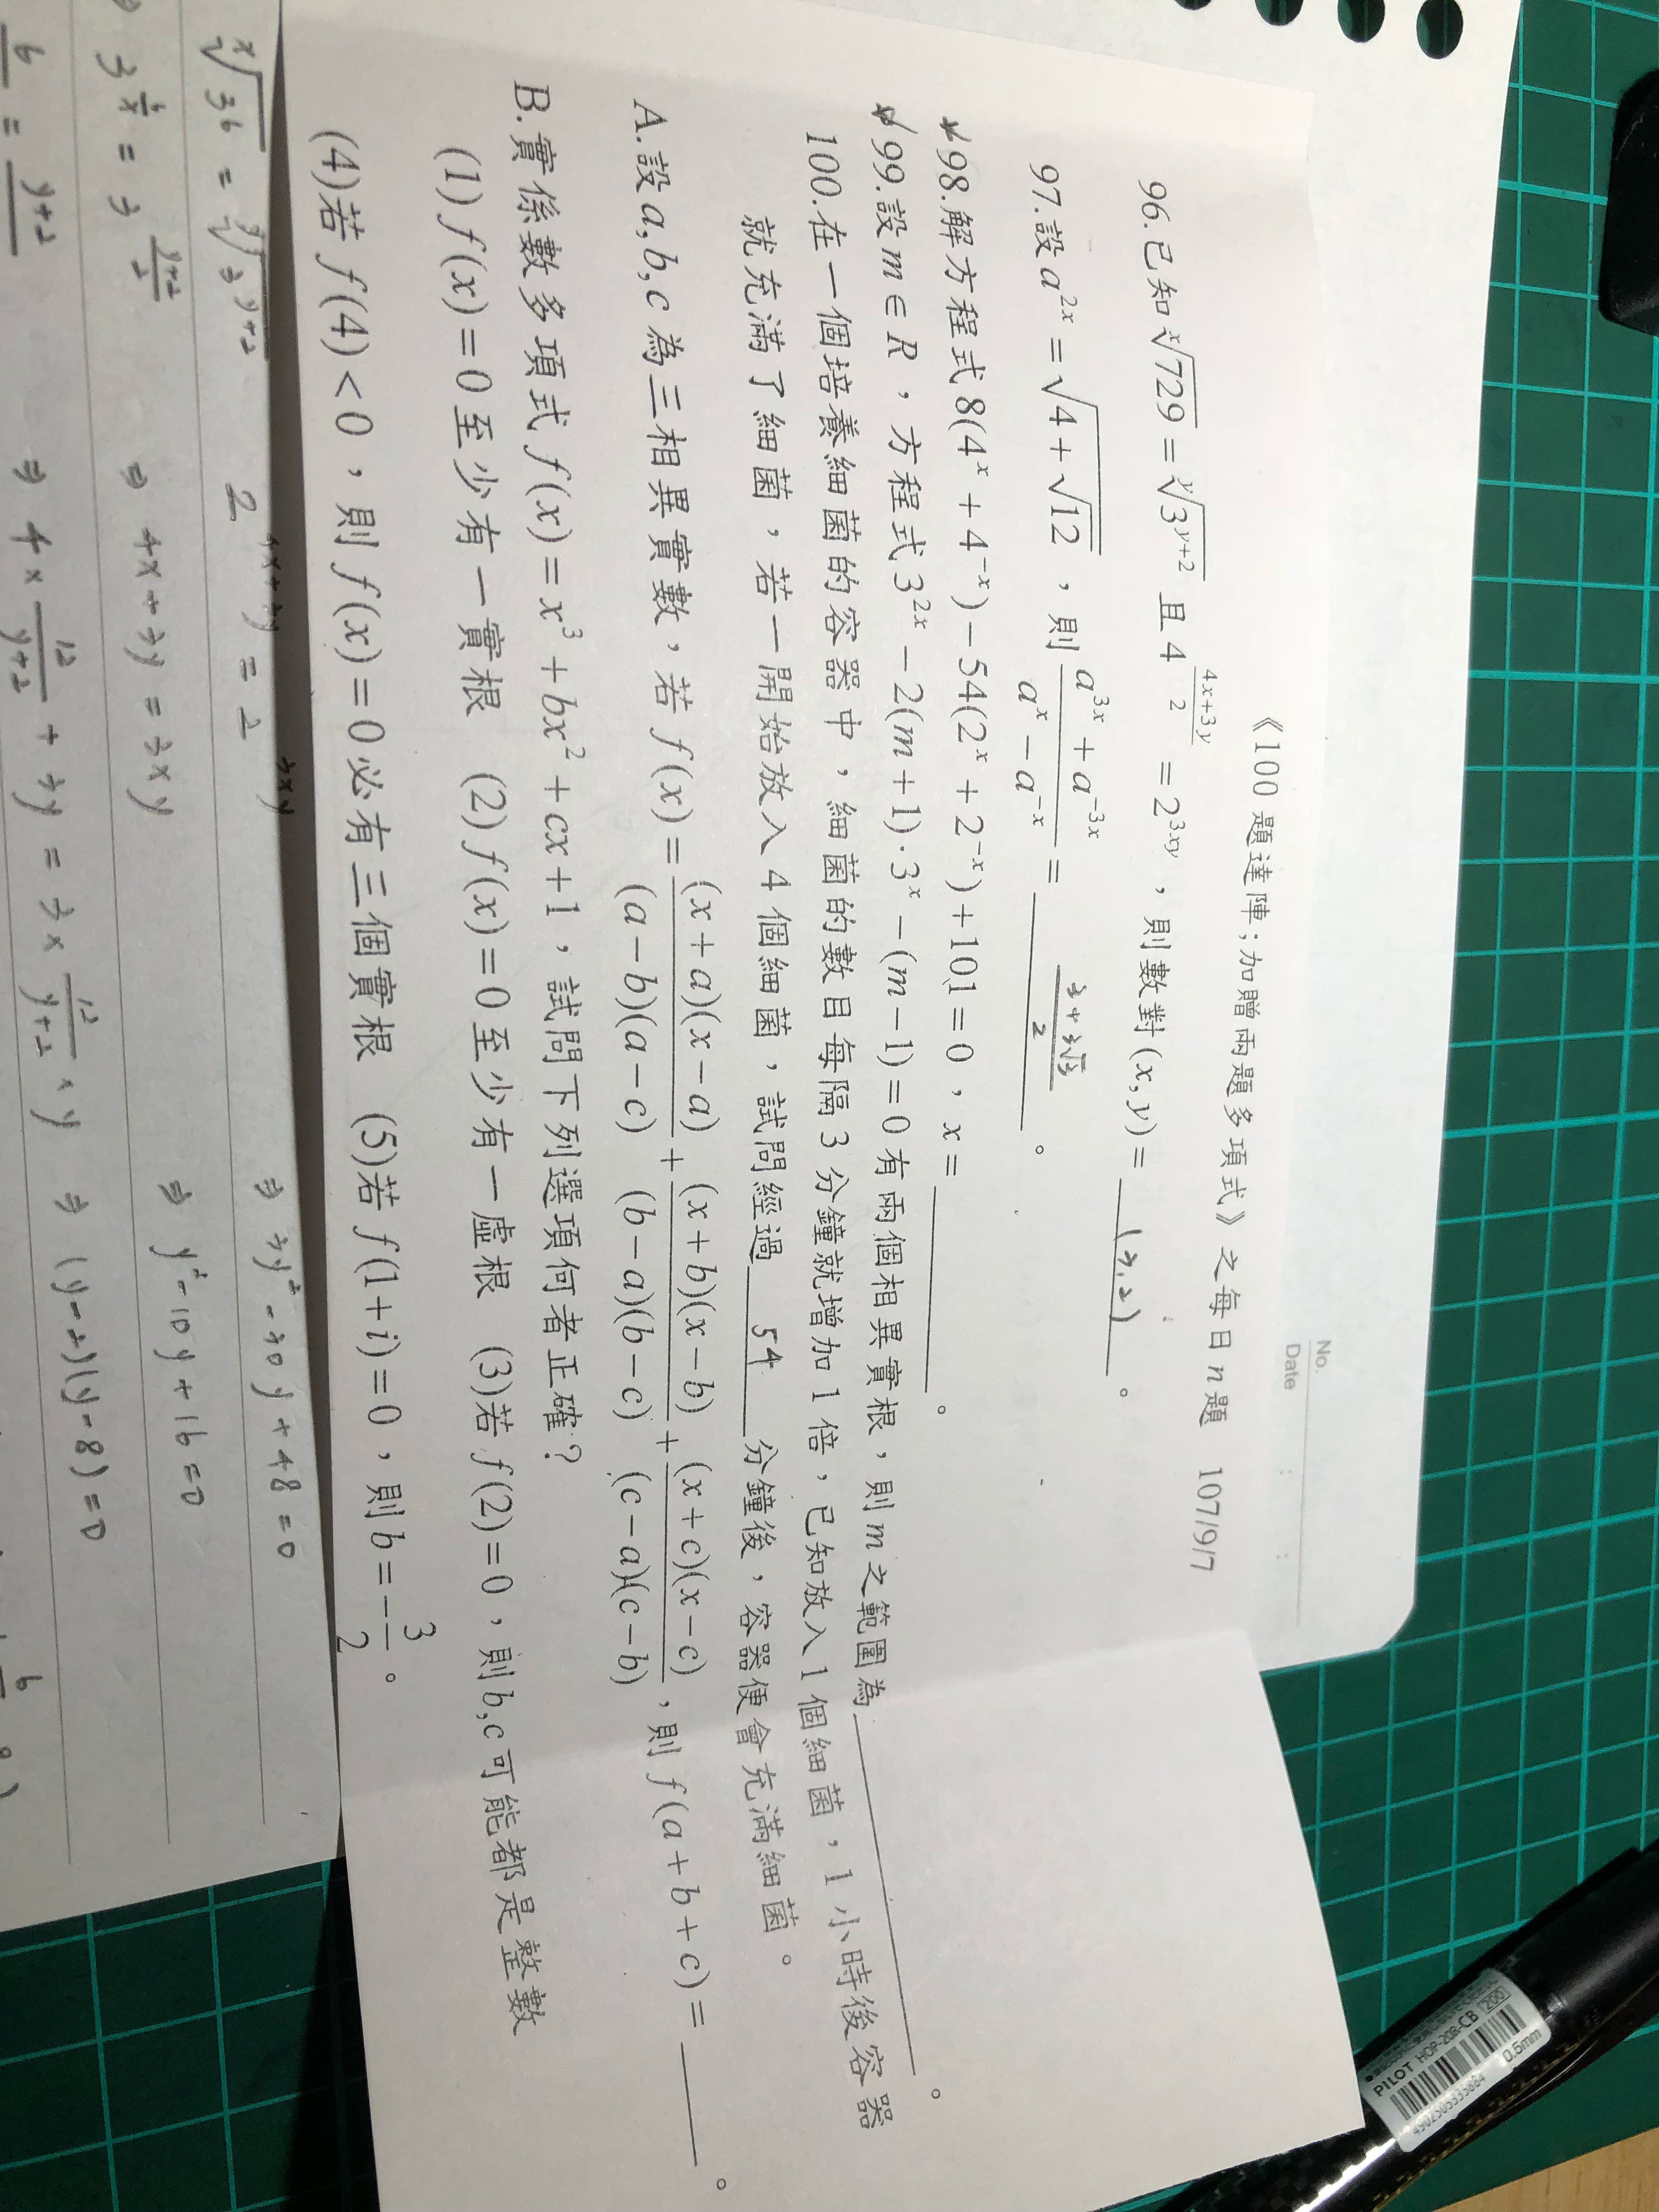 No.
Date
《100 題達陣;加贈兩題多項式》之每日 n 題 107/9/7
96.已知 \sqrt[x]{729} = \sqrt[y]{3^{y+2}} 且 4^{\frac{4x+3y}{2}} = 2^{3xy},則數對(x, y) = (3,2)。
97.設 a^{2x} = \sqrt{4+\sqrt{12}},則 \frac{a^{3x}+a^{-3x}}{a^x-a^{-x}} = \frac{3+3\sqrt{3}}{2}。
98.解方程式 8(4^x + 4^{-x}) − 54(2^x + 2^{-x}) + 101 = 0,x = 。
99.設 m ∈ R,方程式 3^{2x} − 2(m+1)·3^x − (m−1) = 0 有兩個相異實根,則 m 之範圍為 。
100.在一個培養細菌的容器中,細菌的數目每隔 3 分鐘就增加 1 倍,已知放入 1 個細菌,1 小時後容器
就充滿了細菌,若一開始放入 4 個細菌,試問經過 54 分鐘後,容器便會充滿細菌。
A.設 a,b,c 為三相異實數,若 f(x) = \frac{(x+a)(x−a)}{(a−b)(a−c)} + \frac{(x+b)(x−b)}{(b−a)(b−c)} + \frac{(x+c)(x−c)}{(c−a)(c−b)},則 f(a+b+c) = 。
B.實係數多項式 f(x) = x^3 + bx^2 + cx + 1,試問下列選項何者正確?
(1) f(x) = 0 至少有一實根 (2) f(x) = 0 至少有一虛根 (3)若 f(2) = 0,則 b,c 可能都是整數
(4)若 f(4) < 0,則 f(x) = 0 必有三個實根 (5)若 f(1+i) = 0,則 b = −\frac{3}{2}。
\sqrt[x]{3^6} = \sqrt[y]{3^{y+2}} 2^{4x+3y} = 2^{3xy} ⇒ 3y² − 30y + 48 = 0
⇒ 4x + 3y = 3xy ⇒ y² − 10y + 16 = 0
⇒ 4 × \frac{12}{y+2} + 3y = 3 × \frac{12}{y+2} × y ⇒ (y−2)(y−8) = 0
PILOT HOP-20R-CB 200
0.5mm
4902505335884